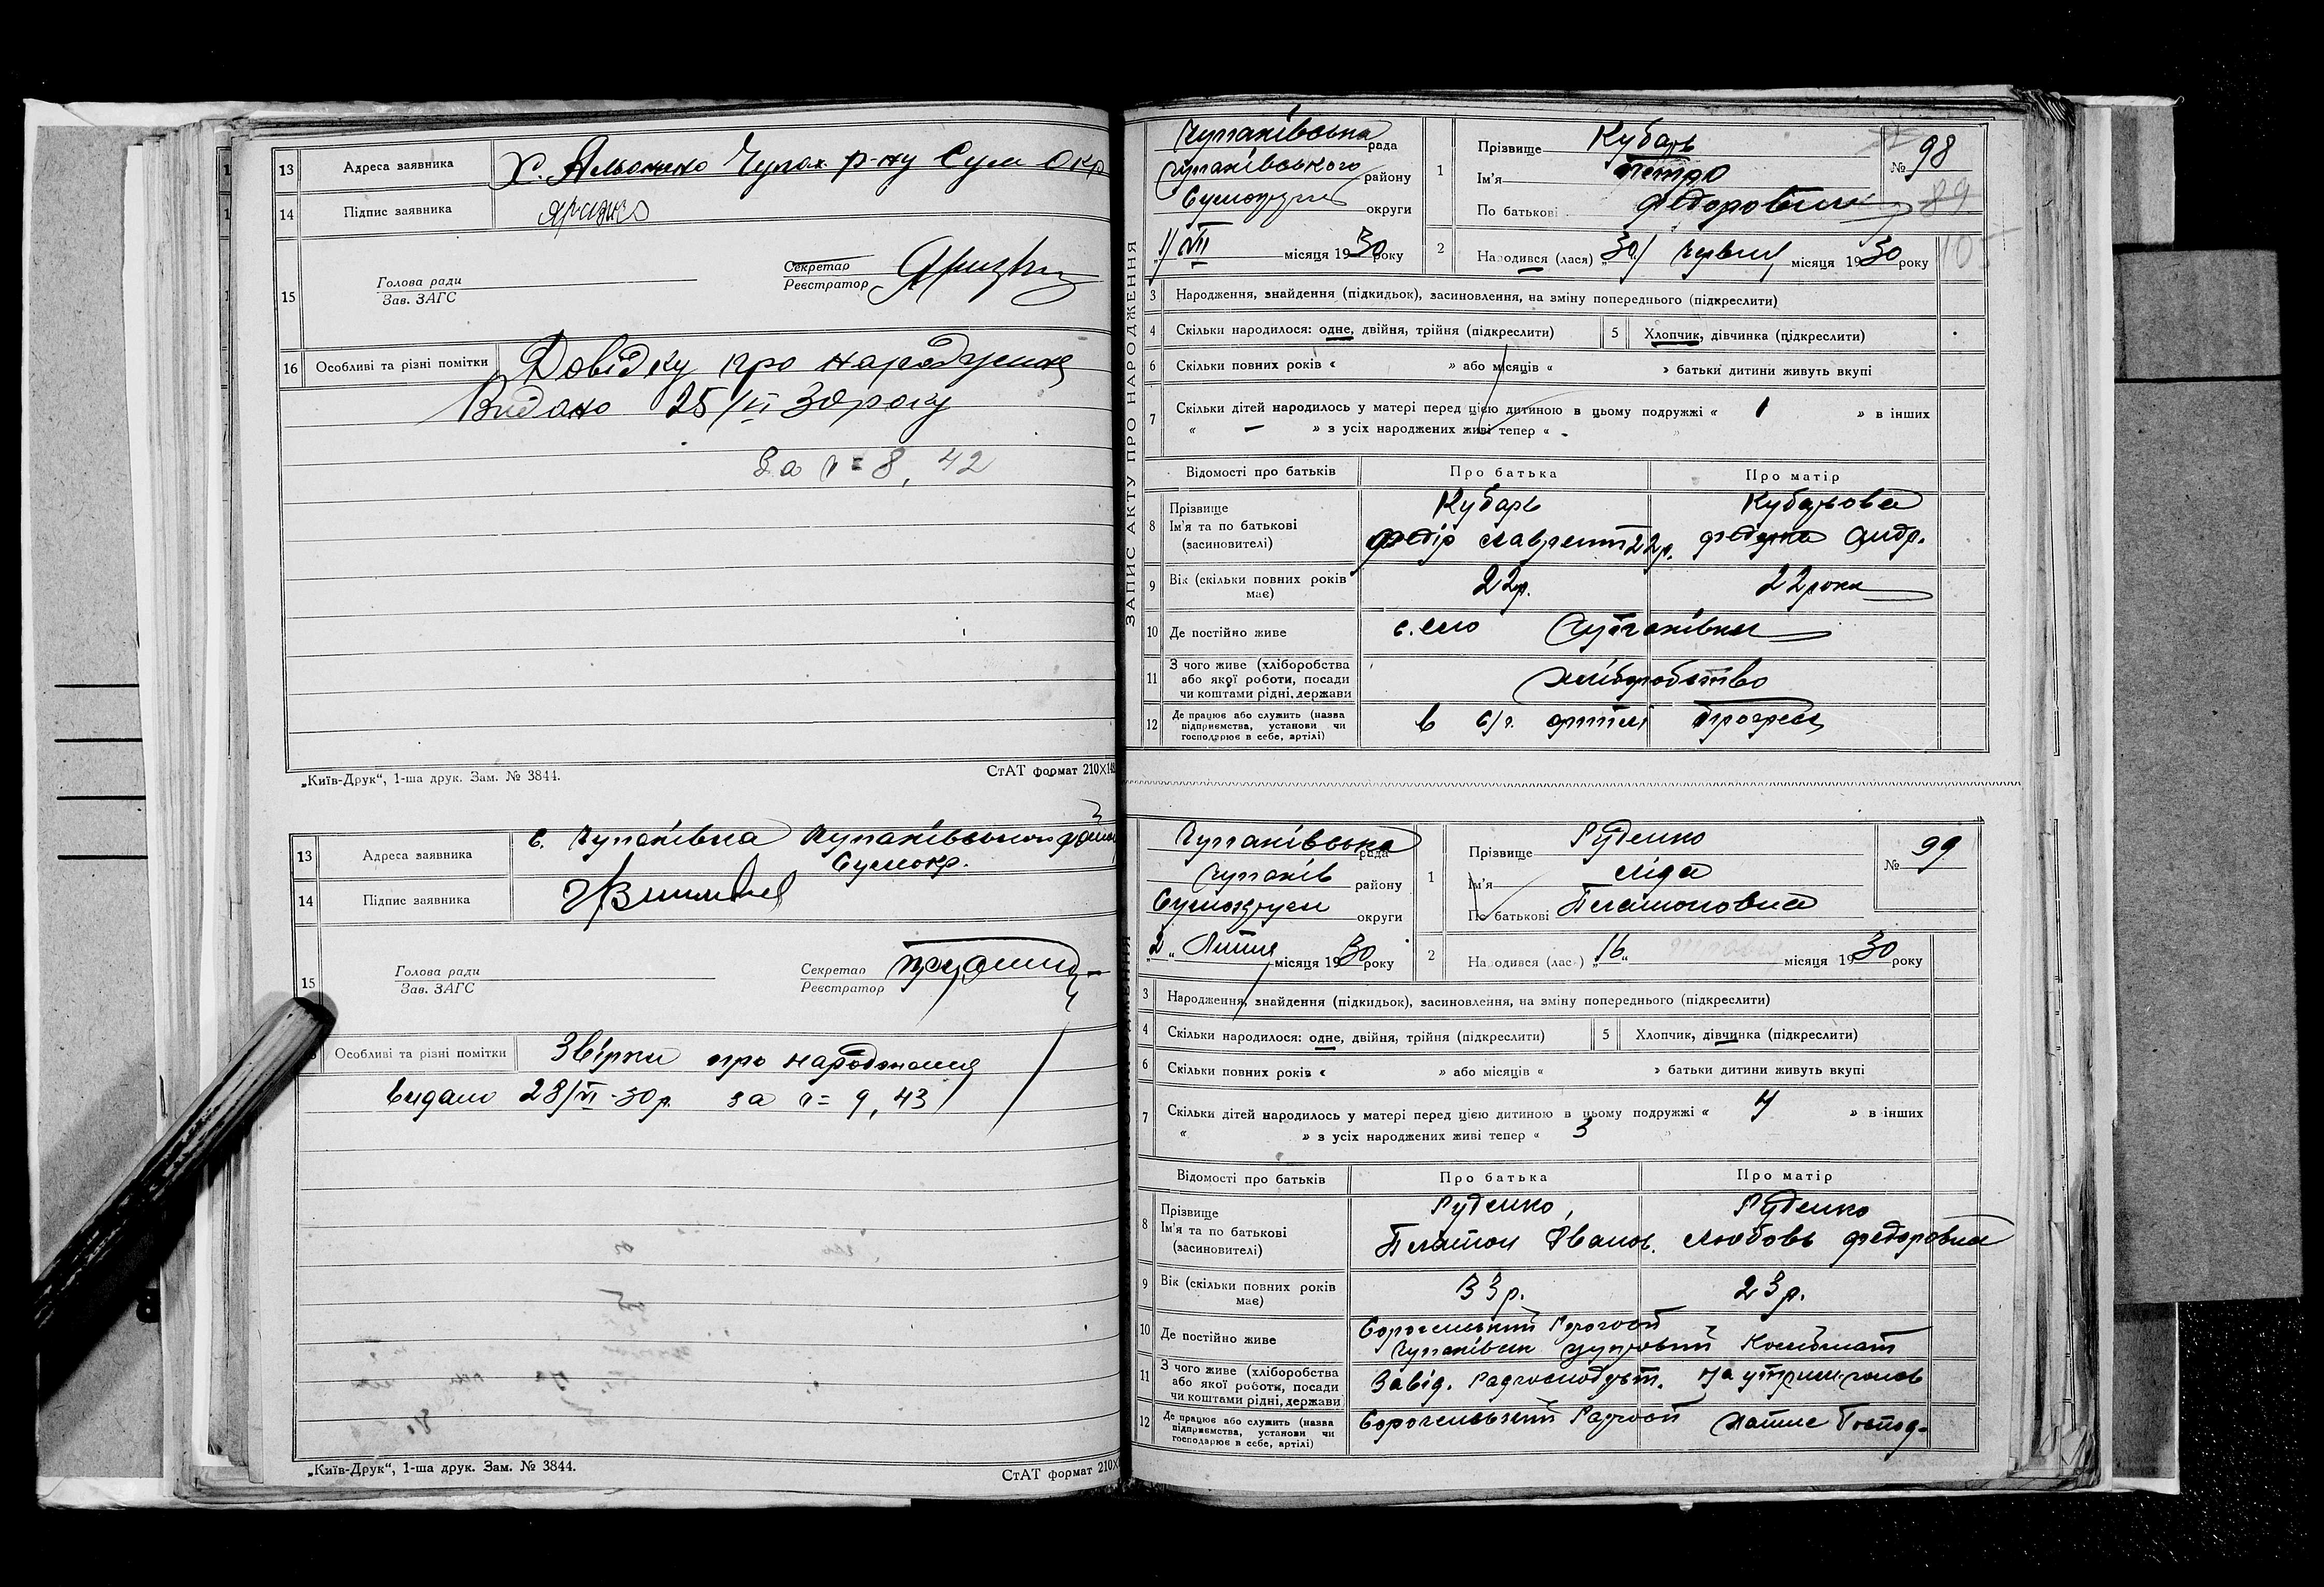 13 Адреса заявника Х. Альонено Чупах. р-ну Сум Окр
14 Підпис заявника
15 Голова ради Секретар
Зав. ЗАГС Реєстратор
16 Особливі та різні помітки Довідку про народження
Видано 25/VI 30 року
За № 8, 42
„Київ-Друк“, 1-ша друк. Зам. № 3844. СтАТ формат 210X148
13 Адреса заявника с. Чупахівка Чупахівського району
Сумокр.
14 Підпис заявника
15 Голова ради Секретар
Зав. ЗАГС Реєстратор
Особливі та різні помітки Звірки про народження
видано 28/VI-30 р. за № 9, 43
„Київ-Друк“, 1-ша друк. Зам. № 3844. СтАТ формат 210X
ЗАПИС АКТУ ПРО НАРОДЖЕННЯ
Чупахівська рада
Чупахівського району
Сумокруги округи
„1/VII місяця 1930 року
1 Прізвище Кубарь
Ім'я Петро
По батькові Федорович
№ 98
89
2 Народився (лася) „30/ Червня місяця 1930 року
3 Народження, знайдення (підкидьок), засиновлення, на зміну попереднього (підкреслити)
4 Скільки народилося: одне, двійня, трійня (підкреслити) 5 Хлопчик, дівчинка (підкреслити)
6 Скільки повних років « » або місяців « » батьки дитини живуть вкупі
7 Скільки дітей народилось у матері перед цією дитиною в цьому подружжі « 1 » в інших
« – » з усіх народжених живі тепер « -
Відомості про батьків Про батька Про матір
8 Прізвище Кубарь Кубарьова
Ім'я та по батькові Федір Лаврент 22р. Федуна Андр.
(засиновителі)
9 Вік (скільки повних років має) 22р. 22 роки
10 Де постійно живе с. ело Чупахівка
11 З чого живе (хліборобства або якої роботи, посади чи коштами рідні, держави Хліборобство
12 Де працює або служить (назва підприємства, установи чи господарює в себе, артілі) в с/г. артілі Прогрес
Чупахівська рада
Чупахів району
Сумокруги округи
„2„ Липня місяця 1930 року
1 Прізвище Руденко
Ім'я Ліда
По батькові Платоновна
№ 99
2 Народився (лась) „16„ травня місяця 1930 року
3 Народження, знайдення (підкидьок), засиновлення, на зміну попереднього (підкреслити)
4 Скільки народилося: одне, двійня, трійня (підкреслити) 5 Хлопчик, дівчинка (підкреслити)
6 Скільки повних років « » або місяців « » батьки дитини живуть вкупі
7 Скільки дітей народилось у матері перед цією дитиною в цьому подружжі « 4 » в інших
« » з усіх народжених живі тепер « 3
Відомості про батьків Про батька Про матір
8 Прізвище Руденко, Руденко
Ім'я та по батькові Платон Іванов. Любовь Федоровна
(засиновителі)
9 Вік (скільки повних років має) 33р. 23р.
10 Де постійно живе Радгосп
Чупахівськ цукровий Комбінат
11 З чого живе (хліборобства або якої роботи, посади чи коштами рідні, держави Завід. На утрим.
12 Де працює або служить (назва підприємства, установи чи господарює в себе, артілі) Радгосп Хатнє Господ-